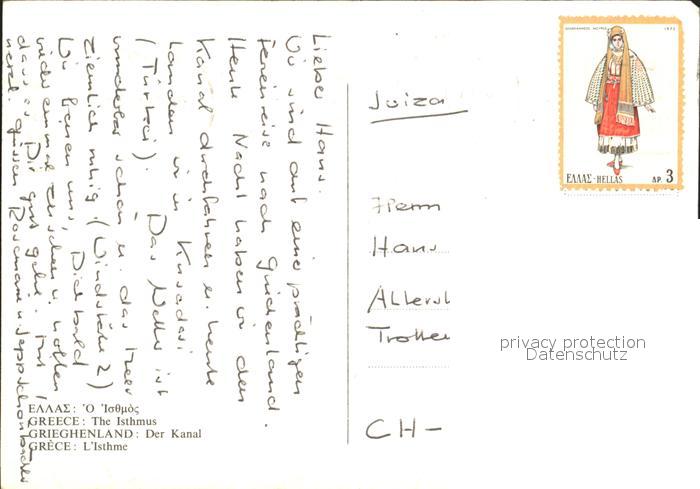 Lieber Hans.
Wir sind auf einer prächtigen
Ferienreise nach Griechenland.
Heute Nacht haben wir den
Kanal durchfahren u. heute
landen wir in Kusadasi
(Türkei). Das Wetter ist
wunderbar schön u. das Meer
ziemlich ruhig (Windstärke 2)
Wir freuen uns, Dich bald
wieder einmal zu sehen u. hoffen,
dass es Dir gut geht. Mit
herzl. Grüssen Rosemarie u. Sepp
ΕΛΛΑΣ: Ὁ Ἰσθμὸς
GREECE: The Isthmus
GRIEGHENLAND: Der Kanal
GRÈCE: L'Isthme
Svizzera
Herrn
Hans
CH-
1972
ΕΛΛΑΣ-HELLAS ΔΡ. 3
privacy protection
Datenschutz